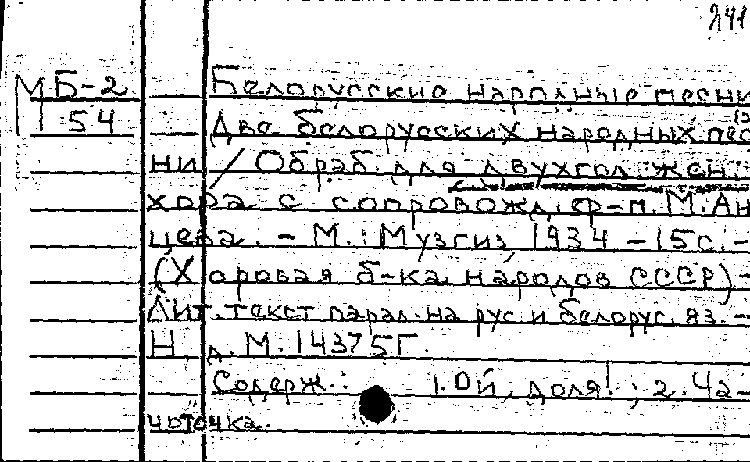 241
МБ-2 Белорусские народные песни
54 Две белорусских народных пес
ни / Обраб. для двухгол. жен.
хора с сопровожд. ф-п. М. Ан
цева. - М.: Музгиз, 1934 - 15 с. -
(Хоровая б-ка народов СССР) -
Лит. текст парал. на рус. и белорус. яз. -
Н. д. М. 14375 Г.
Содерж.: 1. Ой, доля!; 2. Ча-
чоточка.